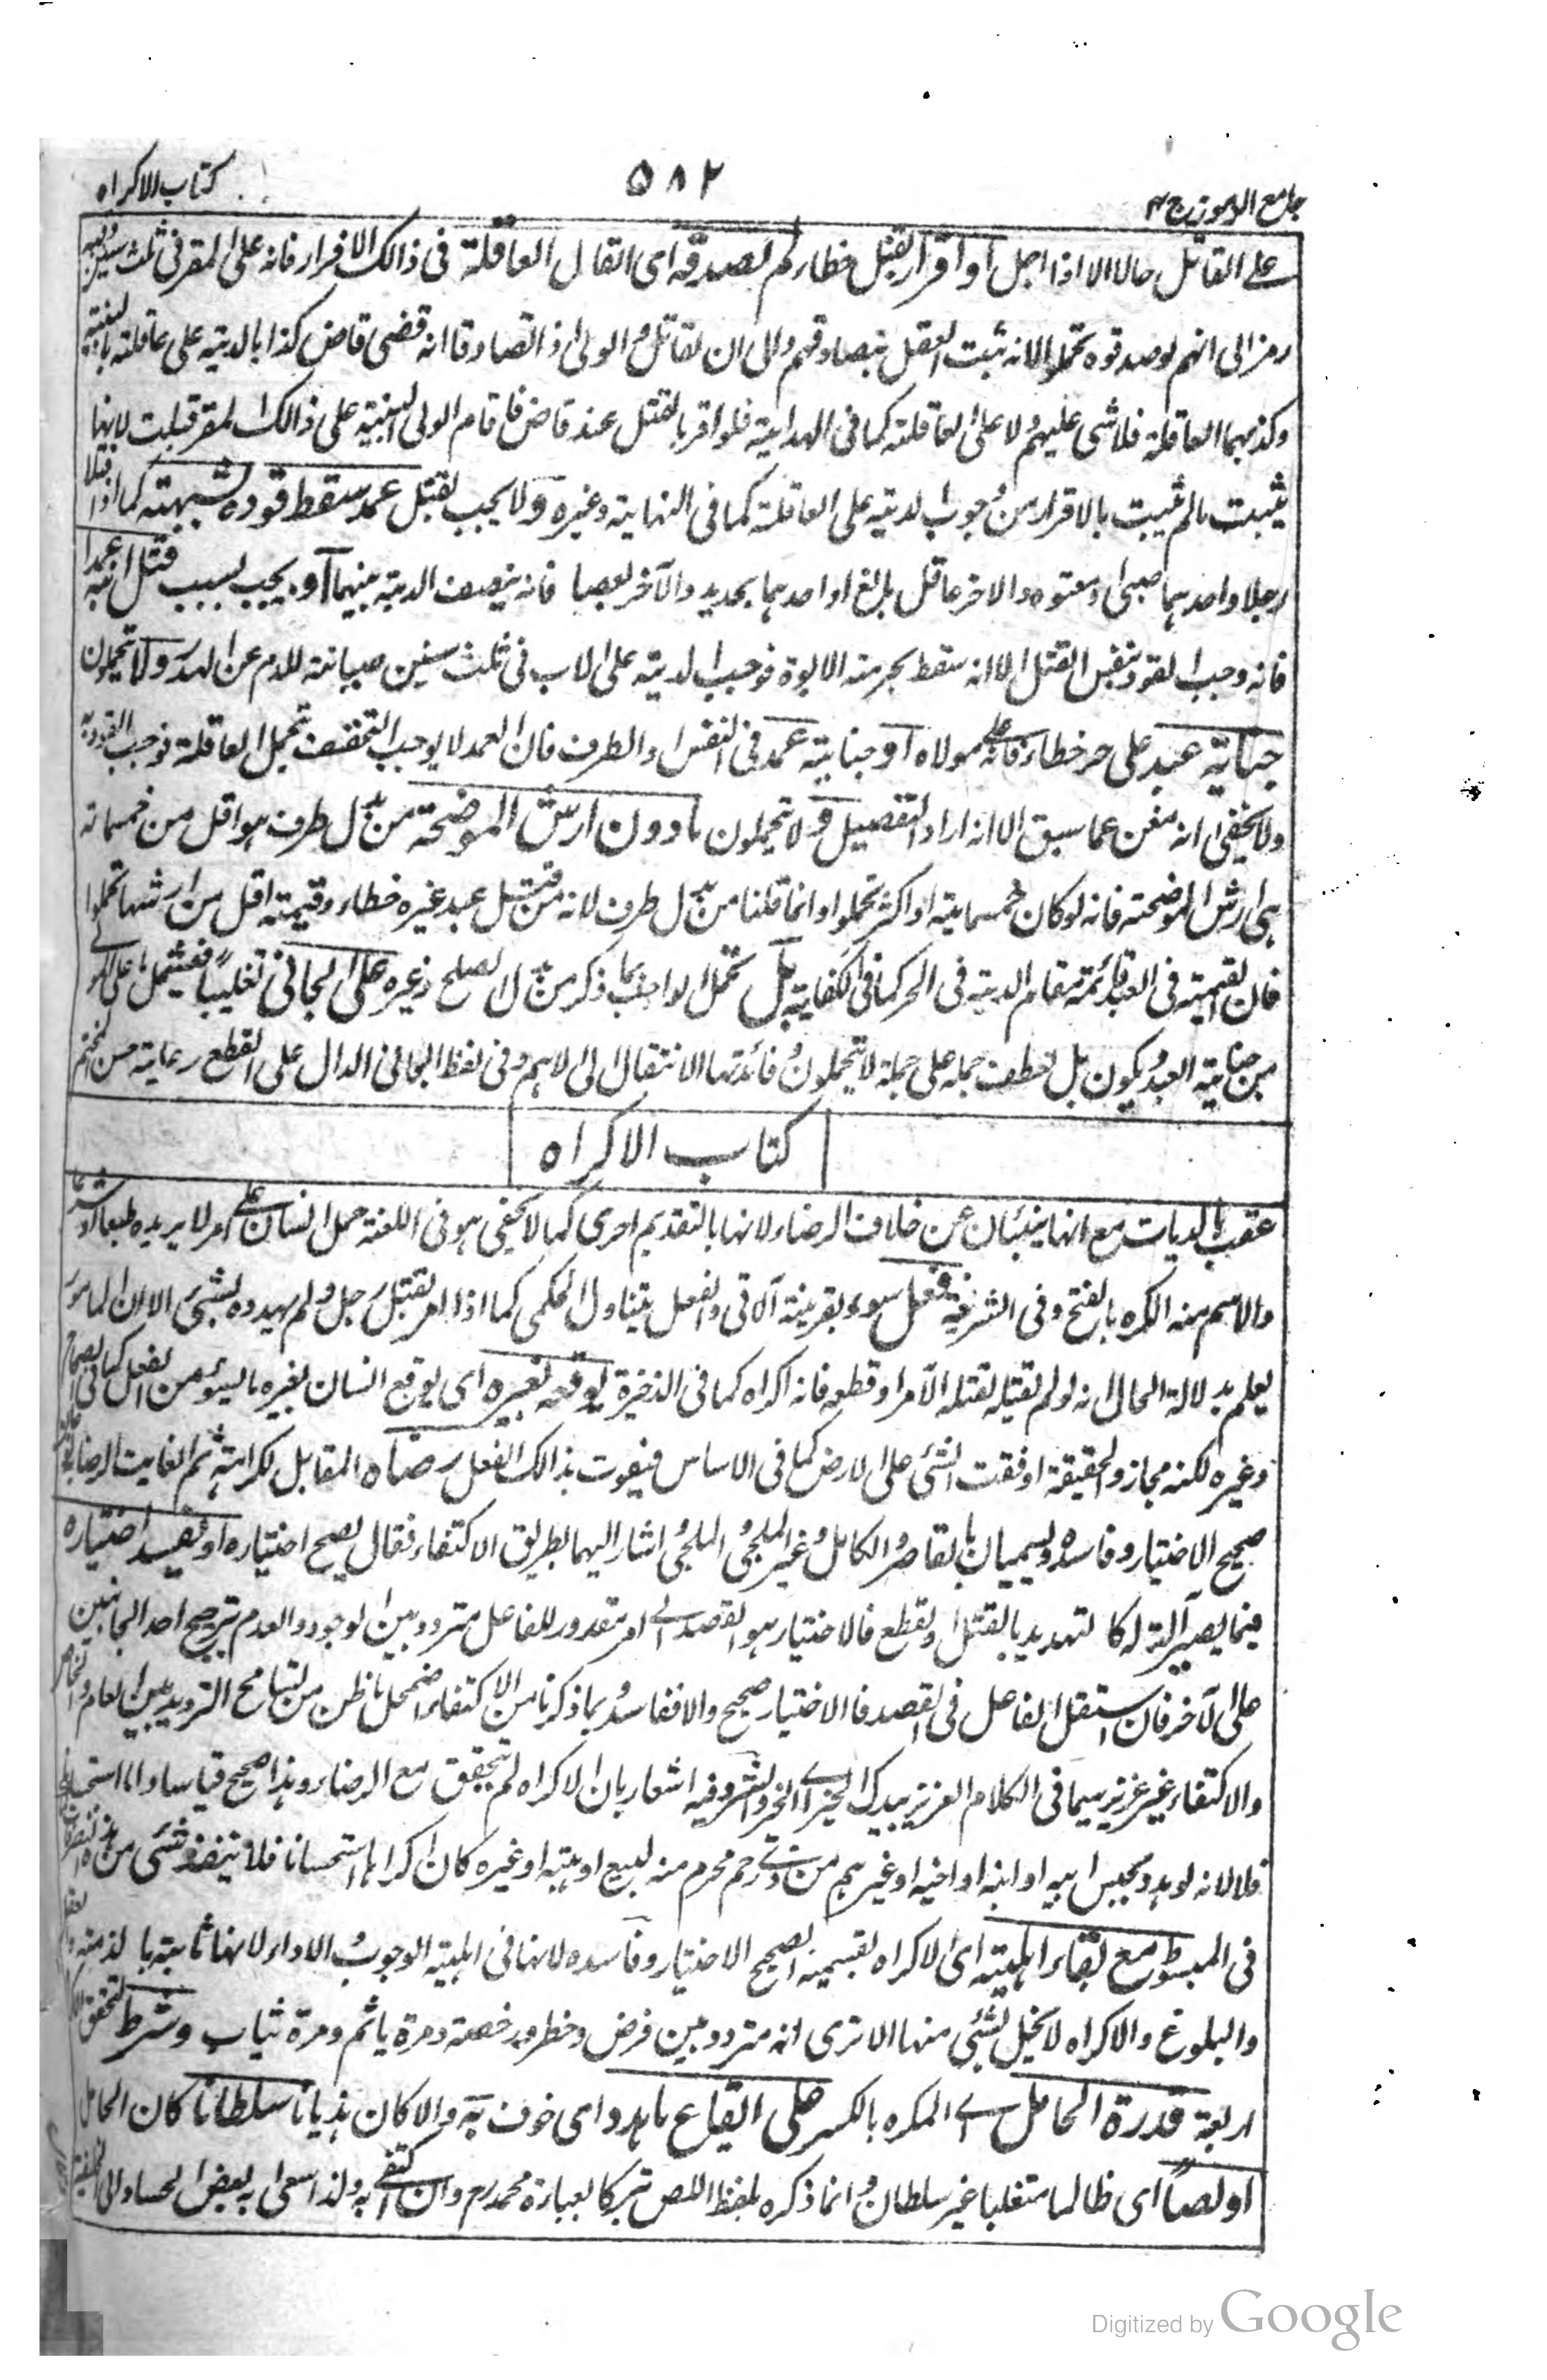 جامع الرموز ج ٣
٥٨٢
كتاب الاكراه
على القاتل حالا الا اذا اجل او اقرار بقتل خطاء لم تصدقه اى القاتل العاقلة فى ذالك الاقرار فانه على المقر فى ثلث سنين وفيه
رمز الى انهم لو صدقوه تحملوا لانه ثبت العقل بتصادقهم والى ان القاتل والولى اذ التصادقا انه قضى قاض كذا بالدية على عاقلته بالبينة
وكذبهما العاقلة فلا شئ عليهم ولا على العاقلة كما فى الهداية فلو اقر بالقتل عند قاض فاقام الولى البينة على ذالك المقر قبلت لانها
يثبت مالم يثبت بالاقرار من وجوب الدية على العاقلة كما فى النهاية وغيره ولا يجب بقتل عمد سقط قوده لشبهته كما اذا قتلا
رجلا واحدهما صبى او معتوه والاخر عاقل بالغ او احدهما بحديد والآخر بعصا فانه ينصف الدية بينهما او يجب بسبب قتل ابنه عمدا
فانه وجب القود بنفس القتل الا انه سقط بحرمته الابوة فوجب الدية على الاب فى ثلث سنين صيانة للدم عن الهدر ولا تحملون
جناية عبد على حر خطاء فانه على مولاه او جناية عمد فى النفس والطرف فان العمد لا يوجب التخفيف تحمل العاقلة فوجب القود به
ولا يخفى انه مغن عما سبق الا انه اراد التفصيل ولا تحملون ما دون ارش الموضحة من بدل طرف هو اقل من خمسمائة
هى ارش الموضحة فانه لو كان خمسماية او اكثر تحملوا وانما قلنا من بدل طرف لانه من قتل عبد غيره خطاء وقيمته اقل من ارشها تحملوا
فان القيمة فى العبد قائمة مقام الدية فى الحر كما فى الكفاية بل تحمل الواجب بما ذكر من بدل الصلح وغيره على الجانى تغليبا فيشمل ما على المولى
من جناية العبد ويكون بل لعطف جملة على جملة لا تحملون وفائدتها الانتقال الى الاهم وفى لفظ الجانى الدال على القطع رعاية حسن الختم
كتاب الاكراه
عقب بالديات مع انها ينبئان عن خلاف الرضاء لانها بالتقديم احرى كما لا يخفى هو فى اللغة حمل انسان على امر لا يريده طبعا او شرعا
والاسم منه الكره بالفتح وفى الشريعة فعل سوء بقرينة الآتى والفعل يتناول الحكمى كما اذا امر بقتل رجل ولم يهدده بشئ الا ان المامور
يعلم بدلالة الحال انه لو لم يقتله لقتله الآمر او قطعه فانه اكراه كما فى الذخيرة يوقعه بغيره اى يوقع انسان بغيره ما يسوء من الفعل كما فى الصحاح
وغيره لكنه مجاز والحقيقة اوقعت الشئ على الارض كما فى الاساس فيفوت بذالك الفعل رضاه المقابل لكراهته ثم الفايت الرضا
صحيح الاختيار وفاسده ويسميان بالقاصر والكامل وغير الملجئ والملجئ اشار اليهما بطريق الاكتفاء فقال يصح اختياره او يفسد اختياره
فيما يصير آلة له كا لتهديد بالقتل والقطع فالاختيار هو القصد الى امر مقدور للفاعل متردد بين الوجود والعدم بترجيح احد الجانبين
على الآخر فان استقل الفاعل فى القصد فالاختيار صحيح والا ففاسد وبما ذكرنا من الاكتفاء اضمحل ما ظن من تسامح الترديد بين العام والخاص
والاكتفاء غير عزيز سيما فى الكلام العزيز بيدك الخير اى الخير والشر وفيه اشعار بان الاكراه لم يتحقق مع الرضاء وهذا صحيح قياسا واما استحسانا
فلا لانه لو هدد بحبس ابيه او ابنه او اخيه او غيرهم من ذى رحم محرم منه لبيع او هبته او غيره كان اكراها استحسانا فلا ينفذ شئ من هذه التصرفات
فى المبسوط مع بقاء اهليته اى الاكراه بقسميه الصحيح الاختيار وفاسده لا ينافى اهلية الوجوب والاداء لانها ثابتة بالذمة والعقل
والبلوغ والاكراه لا يخل بشئ منها الا ترى انه متردد بين فرض وحظر ورخصة ومرة ياثم ومرة يثاب وشرط لتحقق
اربعة قدرة الحامل اى المكره بالكسر على ايقاع ما هدد اى خوف به والا كان هذيانا سلطانا كان الحامل
او لصا اى ظالما متغلبا غير سلطان وانما ذكره بلفظ اللص تبركا بعبارة محمد رح وان اكتفى به ولذا سعى به بعض الحساد الى الخليفة
Digitized by Google